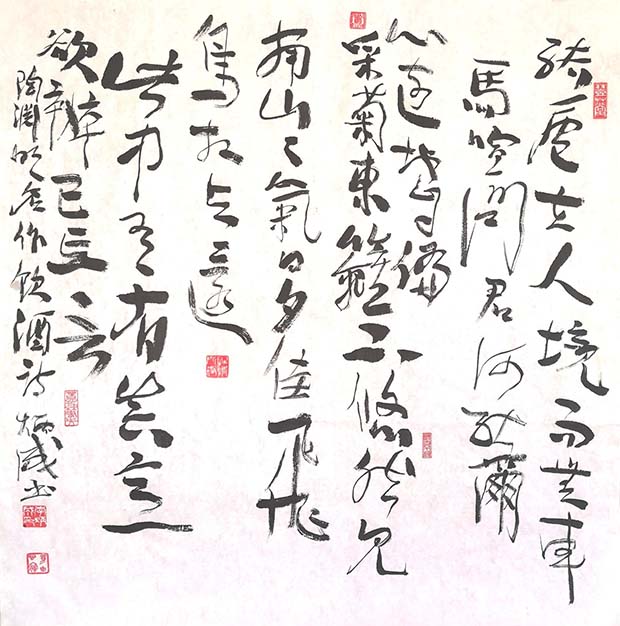 結廬在人境而無車
馬喧問君何能爾
心遠地自偏
采菊東籬下悠然見
南山々氣日夕佳飛
鳥相與還
此中有真意
欲辨已忘言
陶淵明作飲酒詩炳書